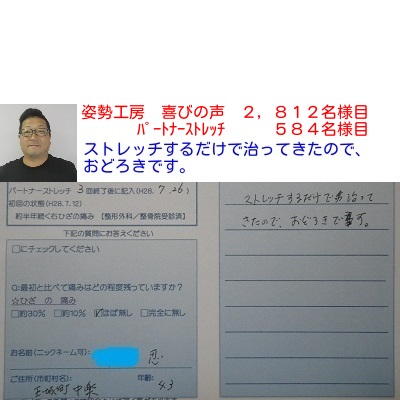 姿勢工房　喜びの声　２，８１２名様目
ﾊﾟｰﾄﾅｰｽﾄﾚｯﾁ　５８４名様目
ストレッチするだけで治ってきたので、
おどろきです。
パートナーストレッチ 3回終了後に記入(H28. 7 .26)
初回の状態(H28.7.12)
約半年続く右ひざの痛み【整形外科／整骨院受診済】
下記の質問にお答えください
□にチェックしてください
Q:最初と比べて痛みはどの程度残っていますか？
☆ひざ の 痛み
□約30% □約10% ☑ほぼ無し □完全に無し
お名前(ニックネーム可): 恐
ご住所(市町村名): 年齢: 43
玉城町中楽
ストレッチするだけで治って
きたので、おどろきです。